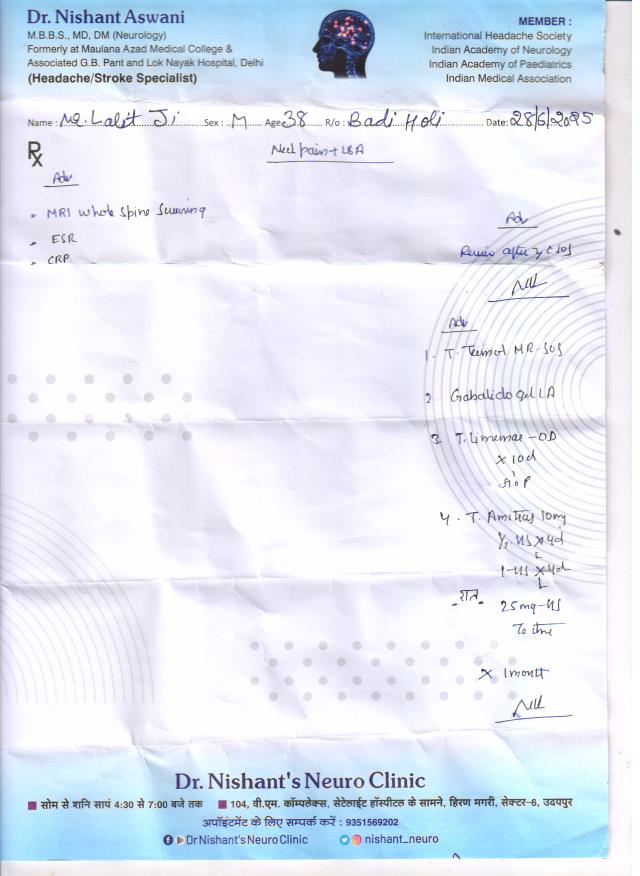 Dr. Nishant Aswani
M.B.B.S., MD, DM (Neurology)
Formerly at Maulana Azad Medical College &
Associated G.B. Pant and Lok Nayak Hospital, Delhi
(Headache/Stroke Specialist)
MEMBER :
International Headache Society
Indian Academy of Neurology
Indian Academy of Paediatrics
Indian Medical Association
Name : Mr. Lalit Ji Sex : M Age 38 R/o : Badi Holi Date: 28/6/2025
Rx
Neck pain + LBA
Adv
- MRI Whole Spine Screening
- ESR
- CRP
Adv
Review after SOS
Adv
1. T. MR-SOS
2. Gel LA
3. T. - OD
x 10d
4. T. 10mg
1/2 - HS x 4d
1 - HS x 4d
25mg - HS
x 1 month
Dr. Nishant's Neuro Clinic
सोम से शनि सायं 4:30 से 7:00 बजे तक 104, वी.एम. कॉम्पलेक्स, सेटेलाईट हॉस्पीटल के सामने, हिरण मगरी, सेक्टर-6, उदयपुर
अपॉइंटमेंट के लिए सम्पर्क करें : 9351569202
Dr Nishant's Neuro Clinic nishant_neuro